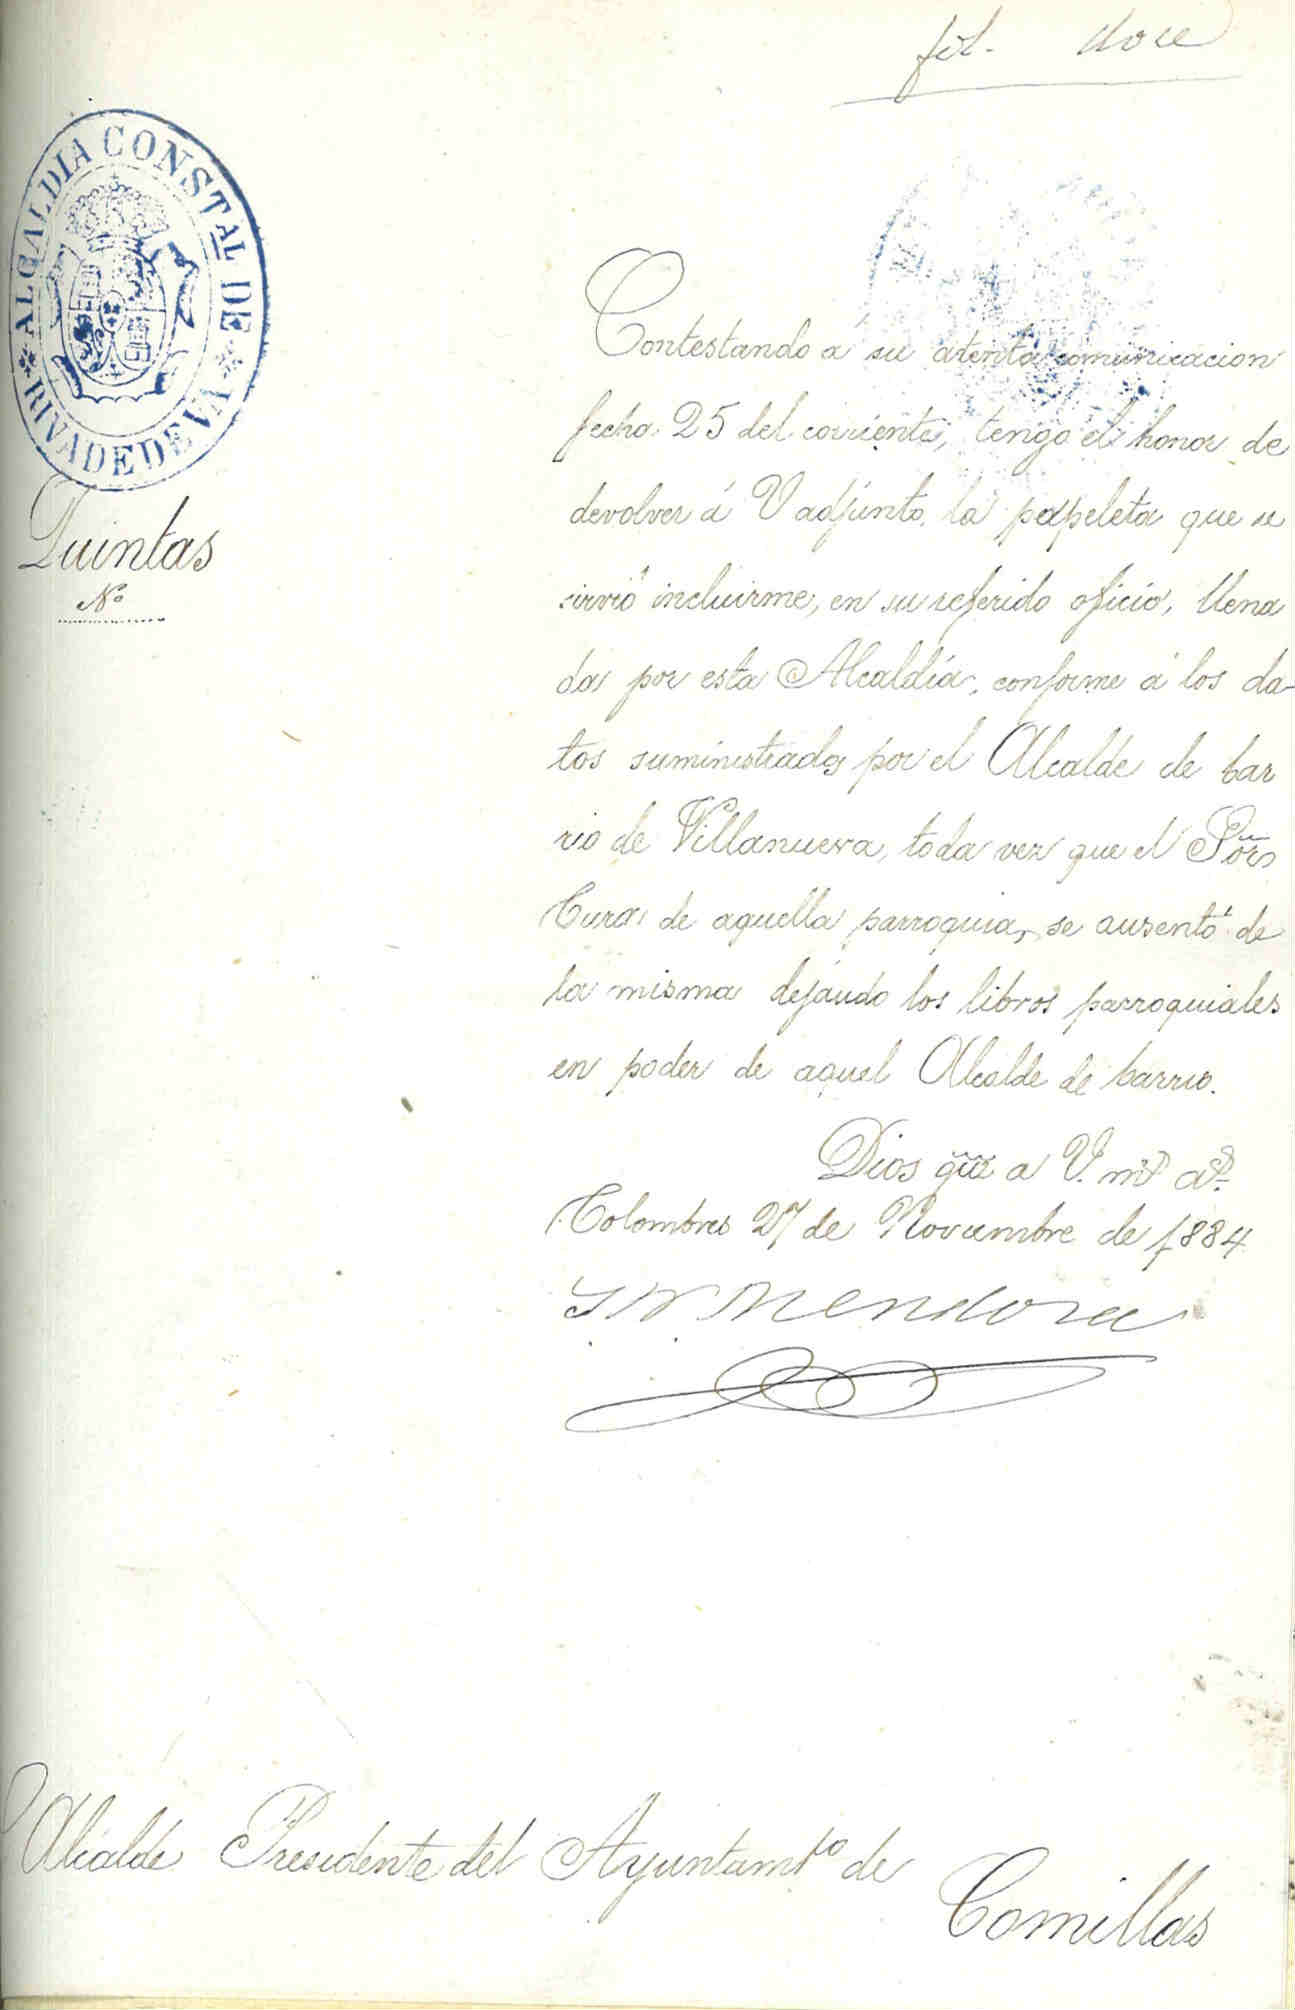 fol. doce
ALCALDIA CONSTAL DE
RIVADEDEVA
Quintas
Nº
Contestando á su atenta comunicacion
fecha 25 del corriente, tengo el honor de
devolver á V adjunto, la papeleta que se
sirvió incluirme, en su referido oficio, llena
da por esta Alcaldía, conforme á los da-
tos suministrados por el Alcalde de bar
rio de Villanueva, toda vez que el Sõr
Cura de aquella parroquia, se ausentó de
la misma dejando los libros parroquiales
en poder de aquel Alcalde de barrio.
Dios gũe a V. mˢ aˢ
Colombres 27 de Noviembre de 1884
Mendoza
Alcalde Presidente del Ayuntamtº de
Comillas